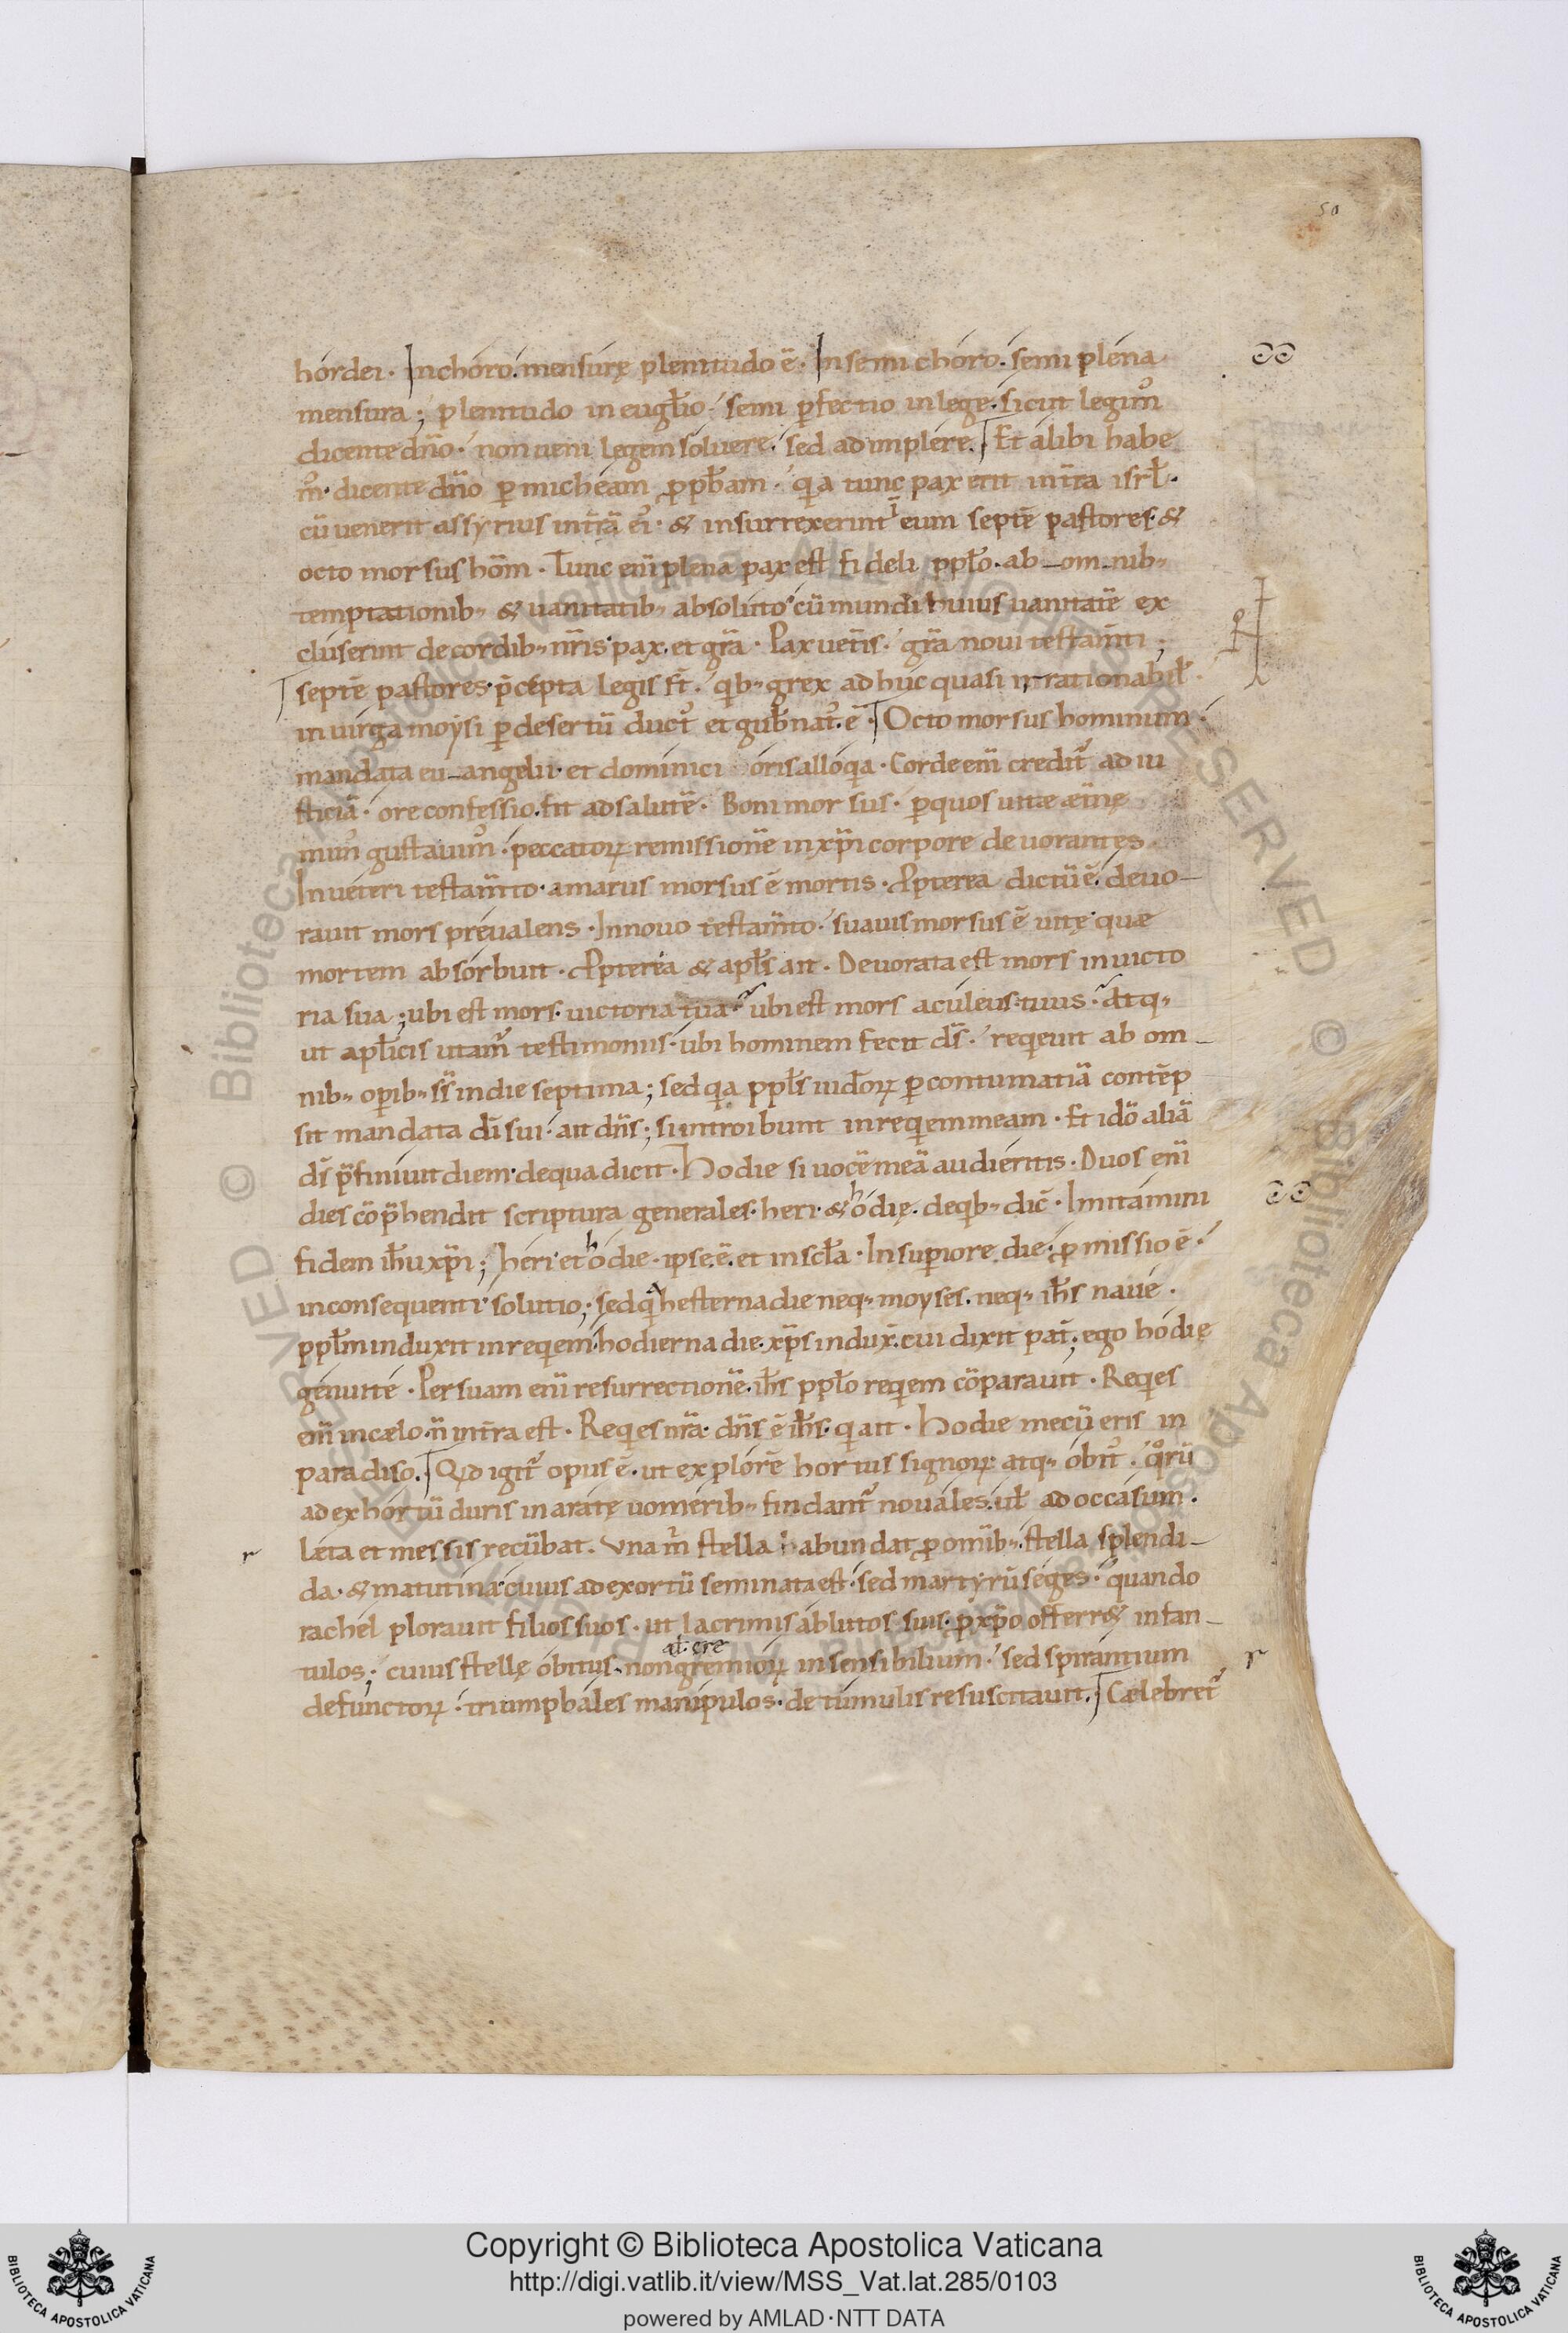 50
hordei. In choro. mensurę plenitudo ē. In semi choro. semi plena
mensura; plenitudo in eugło. semi pfectio in lege. sicut legimꝰ
dicente dño. non ueni legem soluere. sed ad implere. Et alibi habe
mꝰ. dicente dño p micheam ꝓpħam. qa tunc pax erit in t̄ra isrł.
cū uenerit assyrius in t̄rā eiꝰ. & insurrexerint ī eum septē pastores. &
octo morsus hōm. Tunc enī plena pax est fideli ppło. ab omnib.
temptationib. & uanitatib. absoluto. cū mundi huius uanitatē ex
cluserint de cordib. nr̄is. pax. et gr̄a. Pax uet̄is. gr̄a noui testam̄ti;
septē pastores. p̄cepta legis st̄. qb. grex ad huc quasi inrationabił.
in uirga moysi p desertū ductꝰ et gub̄natꝰ. ē. Octo morsus hominum.
mandata eu-angelii. et dominici oris alloqia. Corde enī credit̄ ad iu
sticiā. ore confessio. fit ad salutē. Boni morsus. p quos uitae æt̄nę
munꝰ gustauimꝰ. peccatoꝝ remissionē in xp̄i corpore deuorantes.
In ueteri testam̄to. amarus morsus ē mortis. Ꝓpterea dictū ē. deuo-
rauit mors preualens. In nouo testam̄to. suauis morsus ē uitę quae
mortem absorbuit. Ꝓpterea & apłs ait. Deuorata est mors in uicto
ria sua; ubi est mors. uictoria tua? ubi est mors aculeus. tuus? Atq.
ut apłicis utam̄ testimoniis. ubi hominem fecit ds̄. reqeuit ab om-
nib. opib. ss̄ in die septima; sed qa ppłs iud̄oꝝ p contumatiā contēp
sit mandata dī sui. ait dn̄s; si introibunt in reqem meam. Et idō aliā
ds̄ p̄finiuit diem. de qua dicit. Hodie si uocē meā audieritis. Duos enī
dies cōp̄hendit scriptura generales. heri. & hodię. de qb. dic̄. Imitamini
fidem iħu xp̄i; heri. et hodie. ipse ē. et in scła. In supiore die. ꝓmissio ē.
in consequenti. solutio; sed qa hesterna die neq. moyses. neq. iħs naue.
ppłm induxit in reqem. hodierna die. xp̄s indux̄. cui dixit pat̄; ego hodię
genui te. Per suam enī resurrectionē. iħs ppło reqem cōparauit. Reqes
enī in caelo. n̄ in t̄ra est. Reqes nr̄a. dn̄s ē iħs. qi ait. Hodie mecū eris in
paradiso. Qd igit̄ opus ē. ut explorē hortus signoꝝ atq. obitꝰ. qoꝝ
ad exhortū duris in arate uomerib. findant̄ nouales. uł ad occasum.
Læta et messis recūbat. Vna m̄ stella habundat ꝓ omīb. stella splendi-
da. & matutina. cuius ad exortū seminata est. sed martyrū seges. quando
rachel plorauit filios suos. ut lacrimis ablutos suis. p xp̄o offerr& infan-
al. cre
tulos; cuius stellę obitus. non gremioꝝ insensibilium. sed spirantium
defunctoꝝ. triumphales manipulos. de tumulis resuscitauit. Caelebret̄
r
r
Copyright © Biblioteca Apostolica Vaticana
http://digi.vatlib.it/view/MSS_Vat.lat.285/0103
powered by AMLAD·NTT DATA